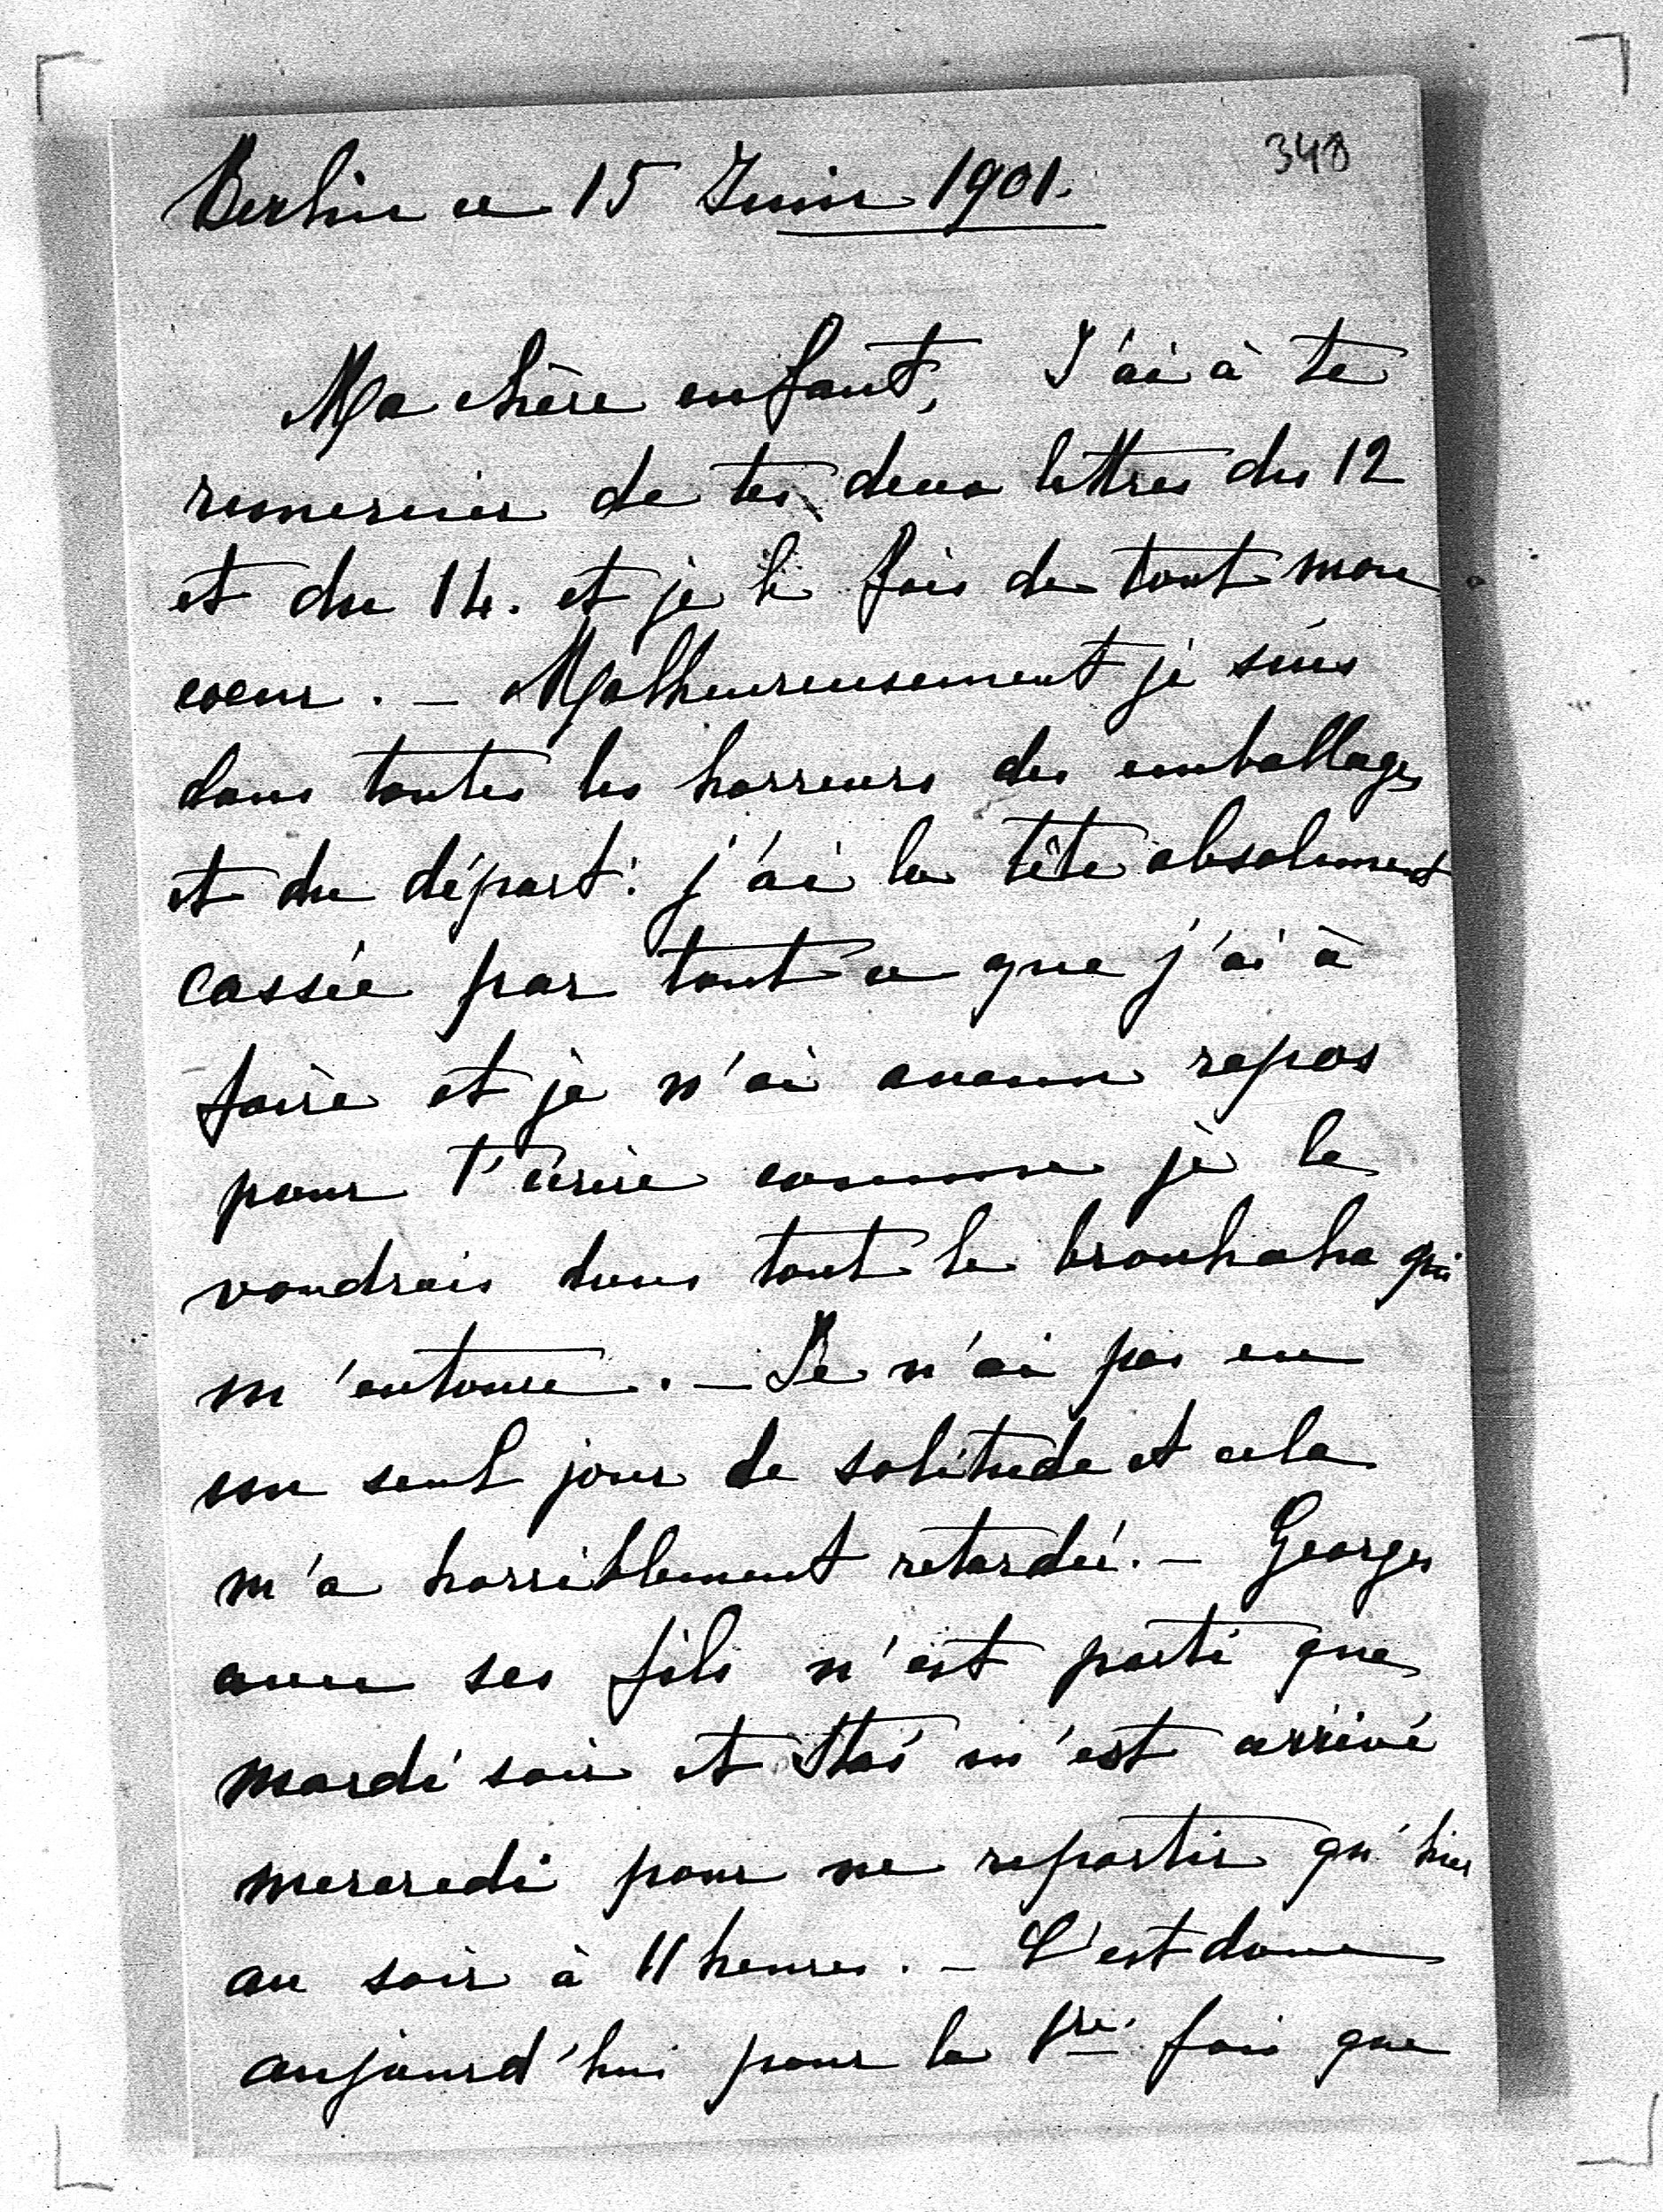 348
Berlin ce 15 Juin 1901.
Ma chère enfant, J'ai à te
remercier de tes deux lettres du 12
et du 14. et je le fais de tout mon
coeur. – Malheureusement je suis
dans toutes les horreurs des emballages
et du départ: j'ai la tête absolument
cassée par tout ce que j'ai à
faire et je n'ai aucun repos
pour t'écrire comme je le
voudrais dans tout le brouhaha qui
m'entoure. – Je n'ai pas eu
un seul jour de solitude et cela
m'a horriblement retardée. – Georges
avec ses fils n'est parti que
mardi soir et Stas m'est arrivé
mercredi pour ne repartir qu'hier
au soir à 11 heures. – C'est donc
aujourd'hui pour la 1re. fois que